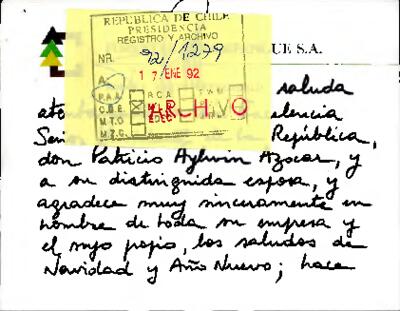 REPUBLICA DE CHILE
PRESIDENCIA
REGISTRO Y ARCHIVO
NR. 92/1279
A: 17 ENE 92
P.A.A. R.C.A. F.W.
C.B.E. M.L.P. P.V.S.
M.T.O. EDEC
M.Z.C.
ARCHIVO
QUE S.A.
saluda
aten lencia
Señ República,
don Patricio Aylwin Azocar, y
a su distinguida esposa, y
agradece muy sinceramente en
nombre de toda su empresa y
el suyo propio, los saludos de
Navidad y Año Nuevo; hace